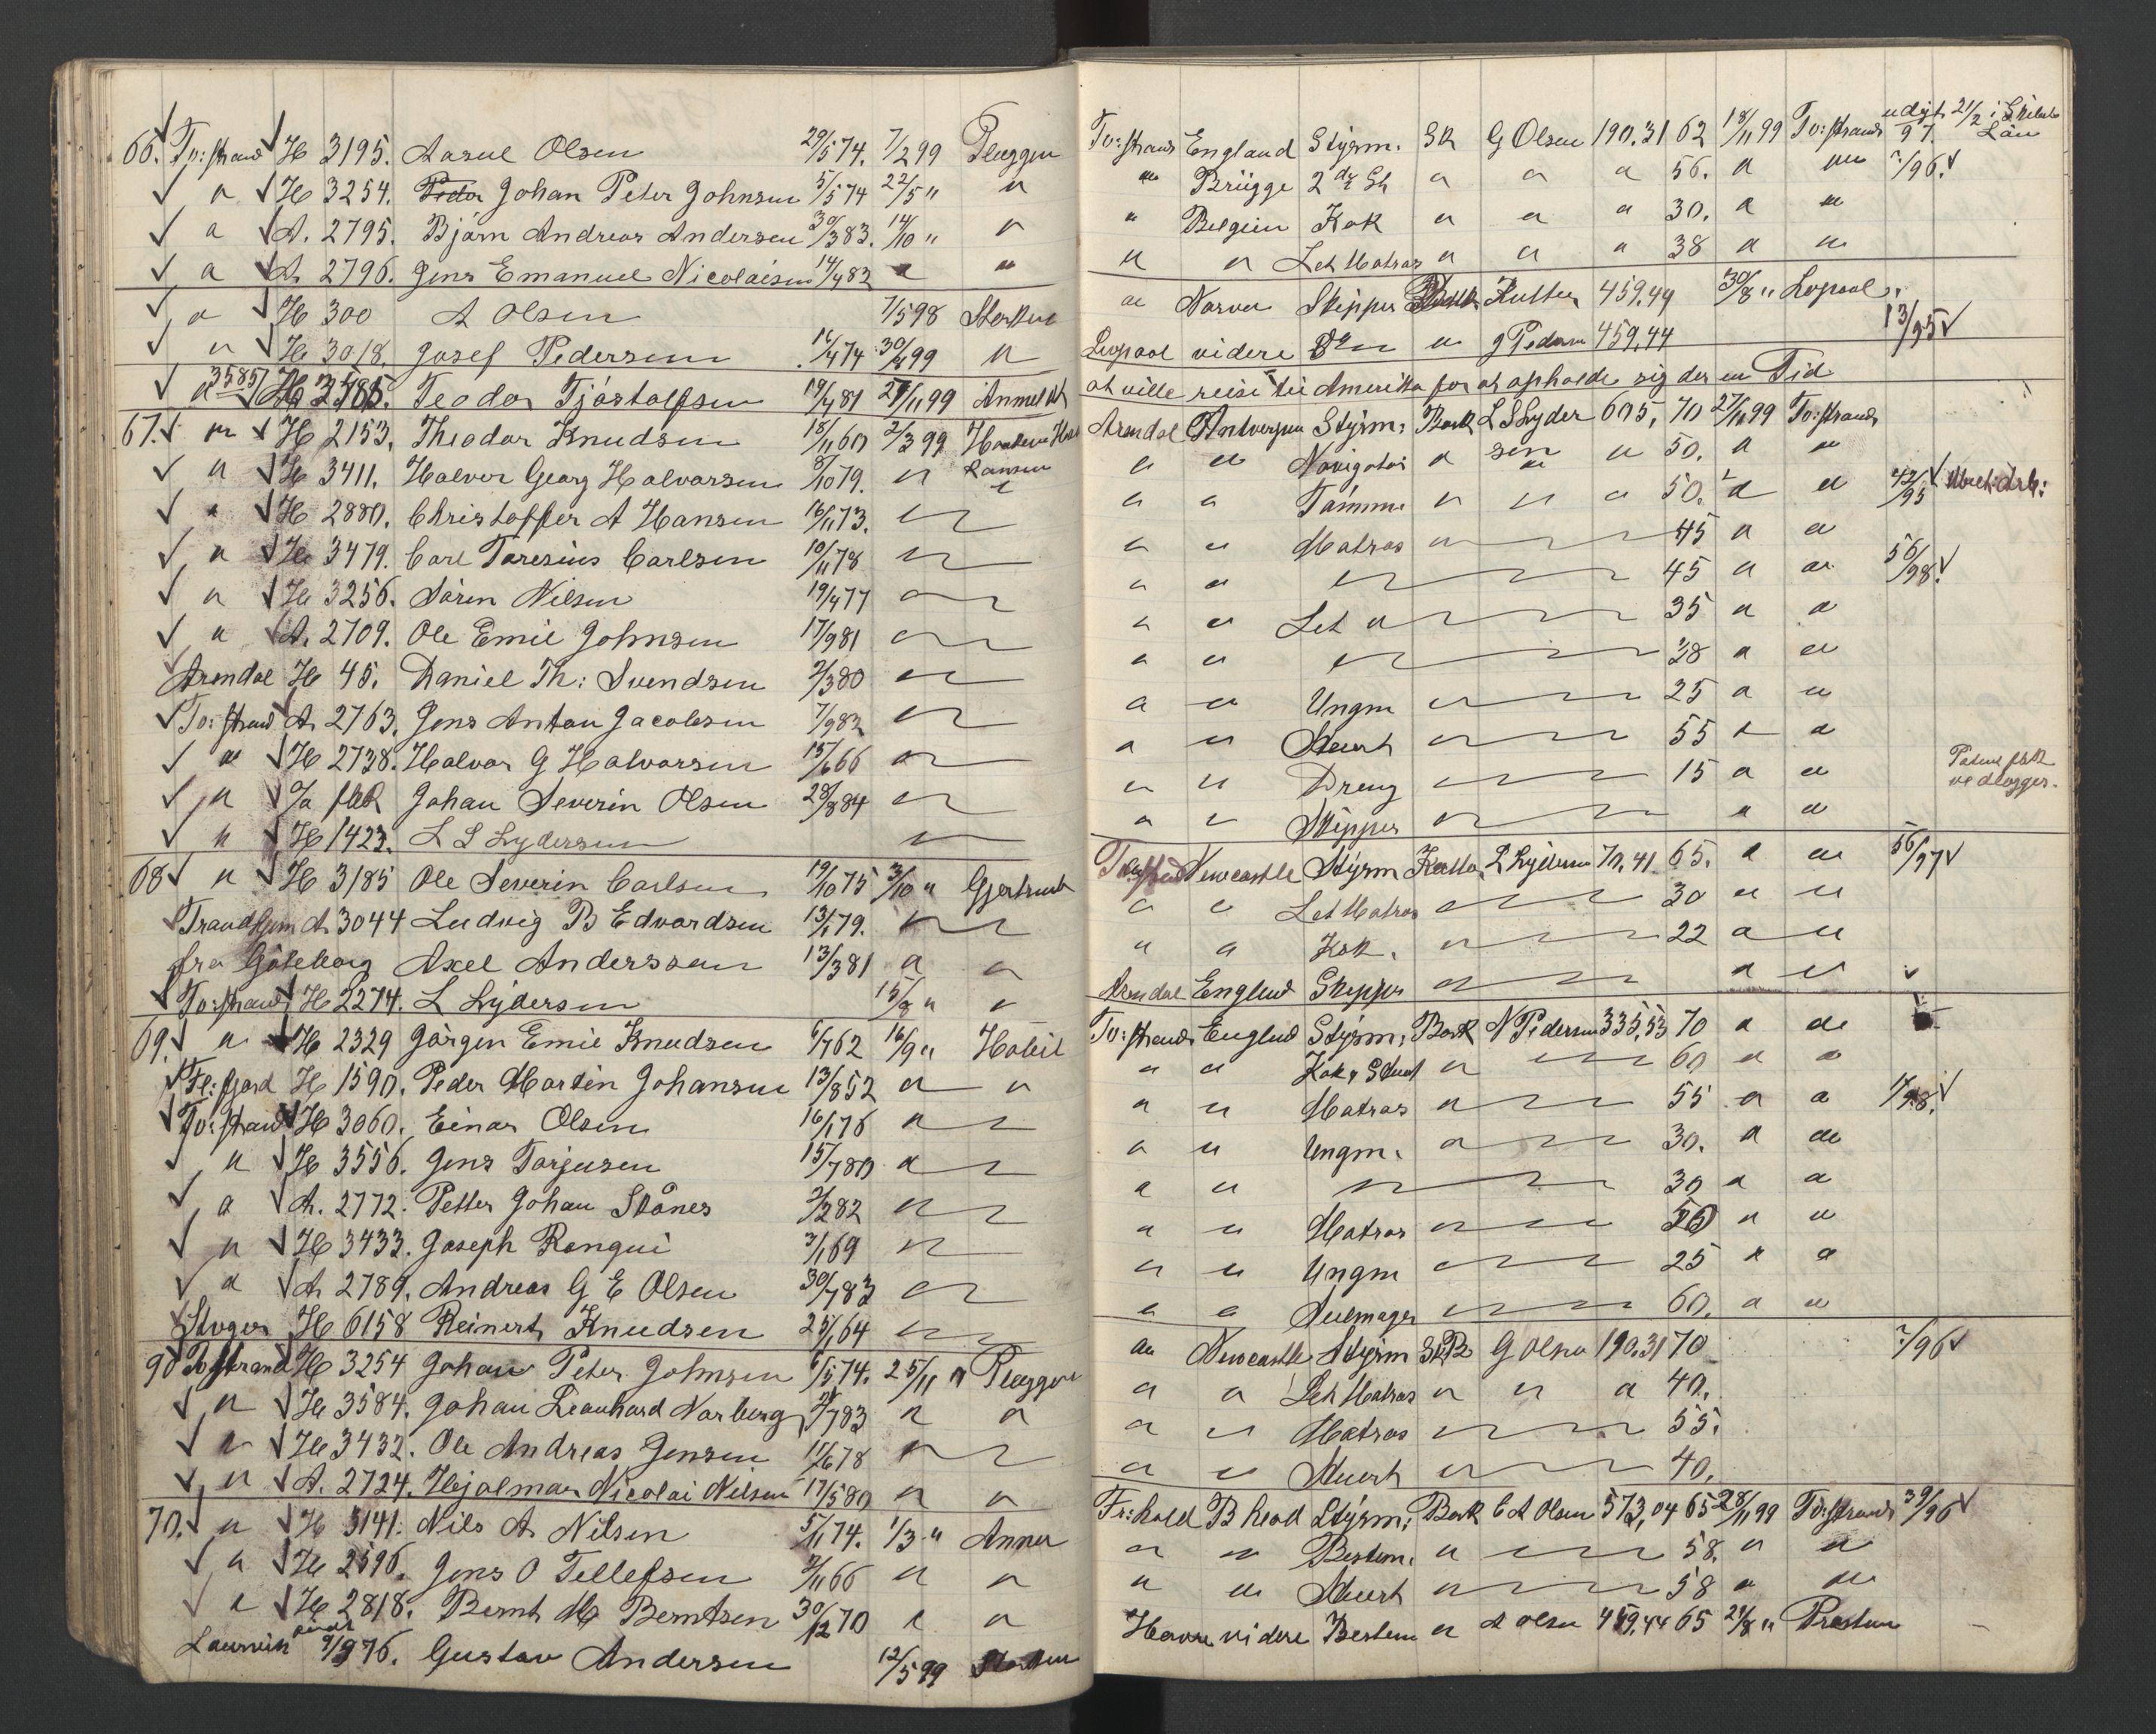 66. To:strand H 3195. Aasul Olsen 29/5 74. 7/2 99 Pluggen
" H 3254. Johan Peter Johnsen 5/5 74 22/5 " "
" A. 2795. Bjørn Andreas Andersen 30/3 83. 14/10 " "
" A 2796. Jens Emanuel Nicolaisen 14/4 82 " "
" H 300 A Olsen 7/5 98 Storken
" H 3018. Josef Pedersen 14/4 74 30/4 99 "
" 3585 Teodor Tjøstolfsen 19/4 81 27/11 99 Anmeldt
67. " H 2153. Theodor Knudsen 18/11 60 2/3 99
" H 3411. Halvor Georg Halvorsen 8/10 79. "
" H 2880. Christoffer A Hansen 16/11 73. "
" H 3479. Carl Taresius Carlsen 10/11 78 "
" H 3256. Søren Nilsen 19/4 77 "
" A. 2709. Ole Emil Johnsen 17/9 81 "
Arendal H 45. Daniel Th: Svendsen 2/3 80 "
To:strand A 2763. Jens Anton Jacobsen 7/9 82 "
" H 2738. Halvor G Halvorsen 15/6 66 "
" Johan Severin Olsen 28/8 84 "
" H 1423. L L Lydersen "
68 " H 3185 Ole Severin Carlsen 19/10 75 3/10 " Gjertrud
Trondhjem A 3044 Ludvig B Edvardsen 13/1 79. "
fra Göteborg Axel Andersson 13/3 81 " "
To:strand H 2274. L Lydersen 15/8 " "
69. " H 2329 Jørgen Emil Knudsen 6/7 62 16/9 "
Fl: fjord H 1590. Peder Martin Johansen 13/8 52 " "
To:strand H 3060. Einar Olsen 16/1 76 "
" H 3556. Jens Torjusen 15/7 80 "
" A. 2772. Petter Johan Skånes 2/2 82 "
" H 3433. Joseph Ronqui 3/1 69 "
" A 2789. Andreas G E Olsen 30/7 83 "
H 6158 Reinert Knudsen 25/1 64 "
90 To:strand H 3254 Johan Peter Johnsen 5/5 74. 25/11 " Pluggen
" H 3584. Johan Leonhard Norberg 7/7 83 " "
" H 3432. Ole Andreas Jensen 11/6 78 "
" A. 2724. Hjalmar Nicolai Nilsen 17/5 80 " "
70. " H 3141. Nils A Nilsen 5/11 74. 1/3 " Anna
" H 2596. Jens O Tellefsen 2/11 66 " "
" H 2818. Bernt M Berntsen 30/12 70 " "
Laurvik Gustav Andersen 12/5 99 Storken
To:strand England Styrm. Sk G Olsen 190.31 62 18/11 99 To:strand
" Brügge 2den St " " " 56. " " /96.
" Belgien Kok " " " 30. " "
" " Let Matros " " " 38 " "
" Narva Skipper Kutter 459.44 30/8 " Lopool
Lopool videre Do " J Pedersen 459.44 13/95
at ville reise til Amerika for at opholde sig der en Tid
Arendal Antverpen Styrm: Bark L L Lyder 605, 70 27/11 99 To:strand
" " Navigatør " sen " 50. " "
" " Tømm: " " " 50. " " 42/95
" " Matros " 45 " "
" " " 45 " " 56/98.
" " Let " 35 " "
" " " 38 " "
" " Ungm " 25 " "
" " Stuert " 55 " "
" " Dreng " 15 " "
" " Skipper " " "
Newcastle Styrm L Lydersen 70,41 65. " " 56/97
" " Let Matros " 30 " "
" " Kok. " 22 " "
Arendal England Skipper " " "
To:strand England Styrm: Bark N Pedersen 335,53 70 " "
" " Kok & Stuert " 60 " "
" " Matros " 55 " "
" " Ungm. " 30. " "
" " " 30 " "
" " Matros " " "
" " Ungm " 25 " "
" " Seilmager " 60. " "
" Newcastle Styrm Sk G Olsen 190.31 70 /96
" " Let Matros " " " 40.
" " Matros " 55.
" " Stuert " 40.
Fr:hald Styrm: Bark C A Olsen 573,04 65 28/11 99 To:strand 39/96
" " Bestm. " 58. " "
" " Stuert " 58 " "
Havre videre Bestm " A Olsen 459.44 65 21/8 " Preston